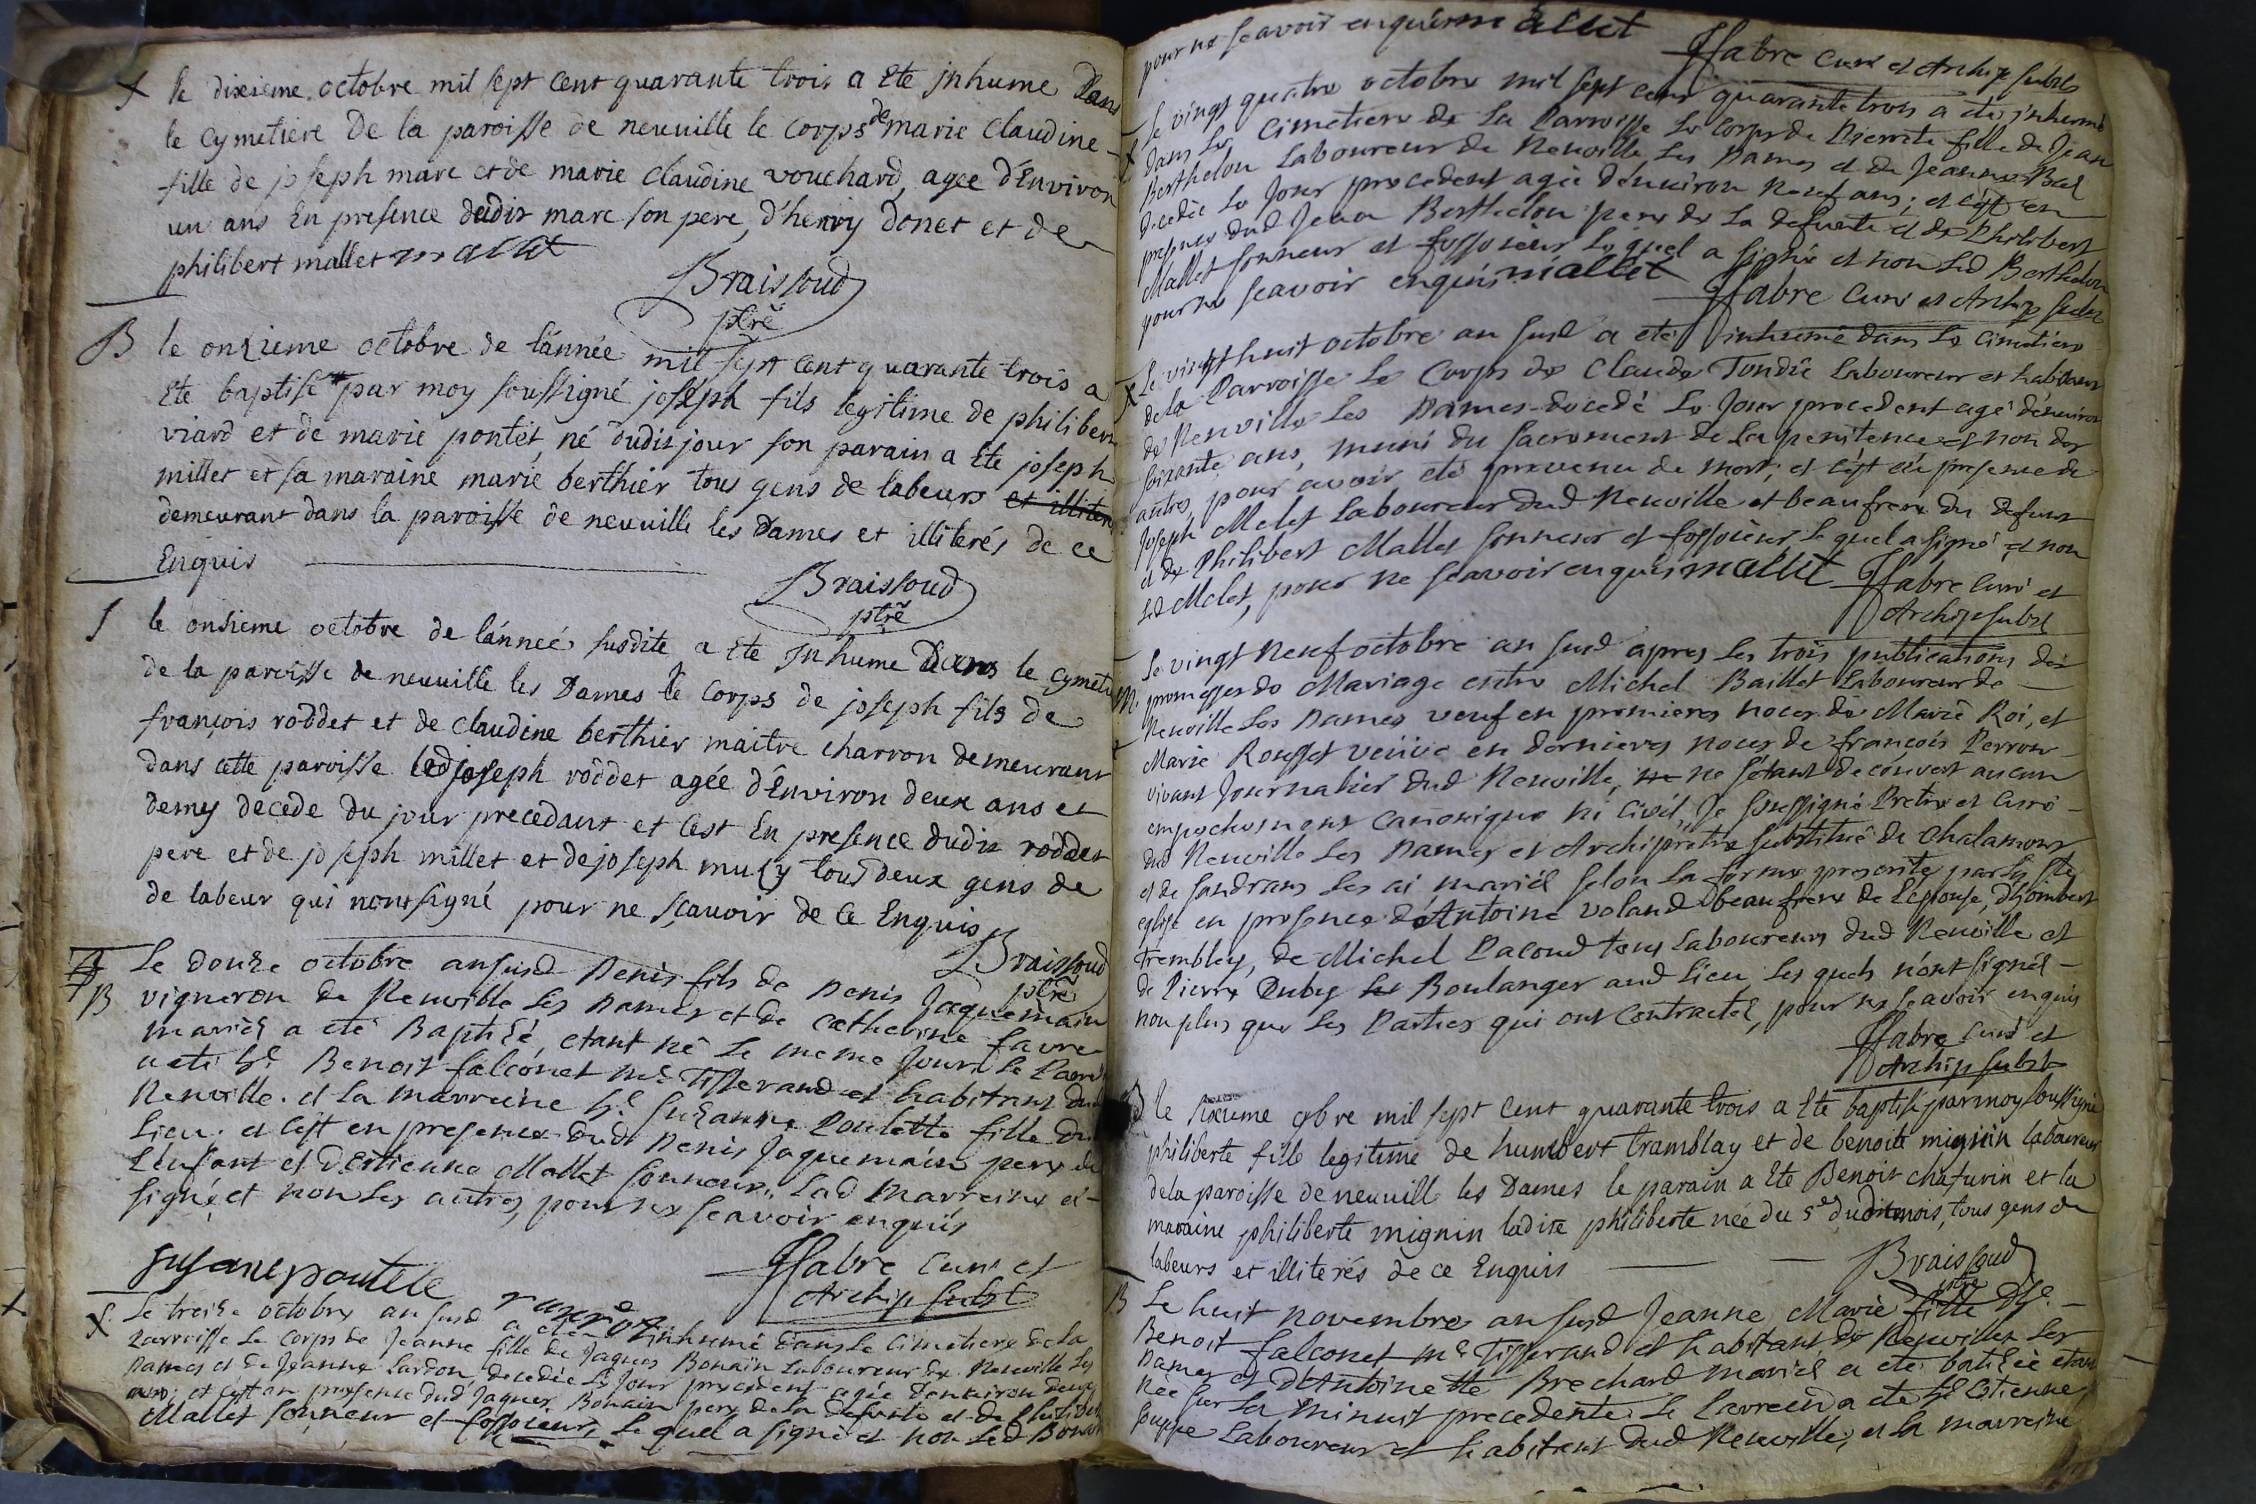 S le dixieme octobre mil sept cent quarante trois a ete jnhume dans
le cymetiere de la paroisse de neuville le corps de marie claudine
fille de joseph marc et de marie claudine vouchard, agee d'Environ
un ans En presence dudit marc son pere, d'henry donet et de
philibert mallet mallet
Braissoud
ptre
B le onzieme octobre de l'année mil sept cent quarante trois a
ete baptisé par moy soussigné joseph fils legitime de philibert
viard et de marie pontet, né dudit jour son parain a ete joseph
millet et sa maraine marie berthier tous gens de labeurs et illiter
demeurant dans la paroisse de neuville les Dames et illiterés de ce
Enquis
Braissoud
ptre
S le onsieme octobre de l'anneé susdite a ete Inhume Dans le cymeti
de la paroisse de neuville les Dames le corps de joseph fils de
françois roddet et de claudine berthier maitre charron demeurant
dans cette paroisse led joseph roddet agée d'Environ deux ans et
demy decede du jour precedant et c'est En presence dudit roddet
pere et de joseph millet et de joseph muzy tous deux gens de
de labeur qui nont signé pour ne sçavoir de ce Enquis
Braissoud
ptre
B Le douze octobre an susd Denis fils de Denis Jaquemain
vigneron de Neuville les Dames et de Catherine favre
mariés a eté Baptisé, etant né le meme Jour, le Parr
a eté Sr Benoit falconet Me Tisserand et habitant dud
Neuville. et la marreine hle Suzanne Poulette fille du
Lieu; et c'est en presence dud Denis Jaquemain pere de
L'enfant et d'Estienne Mallet sonneur. Lad marreine a
signé, et non les autres, pour ne scavoir enquis
susane poulele
ffabre Curé et
Archip subst
S. Le treize octobre an susd a eté inhumé dans le Cimetiere de la
Parroisse le corps de Jeanne fille de Jaques Bonain Laboureur de Neuville les
Dames et de Jeanne Lardon, decedée le Jour precedent agée d'environ deux
ans; et c'est en presence dud Jaques Bonain pere de la defunte et de Philibert
Mallet sonneur et fossoieur, le quel a signé et non led Bonain
pour ne scavoir enquis mallet
ffabre Curé et Archip subst
Le vingt quatre octobre mil sept cent quarante trois a eté inhumé
dans le Cimetiere de la Parroisse le Corps de Pierrete fille de Jean
Berthelon Laboureur de Neuville les Dames et de Jeanne Bal
decedée le Jour precedent agée d'environ neuf ans; et c'est en
presence dud Jean Berthelon pere de la defunte et de Philibert
Mallet sonneur et fossoieur le quel a signé et non led Berthelon
pour ne scavoir enquis mallet
ffabre Curé et Archip subst
Le vingt huit octobre an susd a eté inhumé dans le Cimetiere
de la Parroisse le Corps de Claude Tondû Laboureur et habitant
de Neuville les Dames decedé le Jour precedent agé d'environ
soixante ans, muni du sacrement de la penitence et non des
autres, pour avoir eté prevenu de mort; et c'est en presence de
Joseph Melet Laboureur dud Neuville et beaufrere du defunt
et de Philibert Mallet sonneur et fossoieur le quel a signé et non
led Melet, pour ne scavoir enquis mallet
ffabre Curé et
Archip subst
M. Le vingt neuf octobre an susd apres les trois publications des
promesses de Mariage entre Michel Baillet Laboureur de
Neuville les Dames veuf en premieres noces de Marie Roi, et
Marie Rousset veuve en dernieres noces de françois Perron
vivant Journalier dud Neuville, ne s'etant decouvert aucun
empechement canonique ni civil, Je soussigné Pretre et Curé
dud Neuville les Dames et Archipretre substitué de Chalamont
et de Sandrans les ai mariés selon la forme prescrite par la Ste
eglise en presence d'Antoine Voland beaufrere de l'epouse, d'homber
Trembley, de Michel Pacoud tous Laboureurs dud Neuville et
de Pierre Duby Boulanger aud Lieu les quels n'ont signés
non plus que les Parties qui ont contracté, pour ne scavoir enquis
ffabre Curé et
Archip subst
le sixieme 9bre mil sept cent quarante trois a ete baptisé par moy soussigné
philiberte fille legitime de humbert tramblay et de benoite mignin laboureur
de la paroisse de neuville les Dames le parain a ete Benoit chaturin et la
maraine philiberte mignin ladite philiberte née du 5e dudit mois, tous gens de
labeurs et illiterés de ce Enquis
Braissoud
ptre
B Le huit novembre an susd Jeanne Marie fille d'he
Benoit falconet Me Tisserand et habitant de Neuville les
Dames et d'Antoinette Brechard mariés a eté batisée etant
née sur la minuit precedente. le Parrein a eté Sr Estienne
Souppe Laboureur et habitant dud Neuville, et la marreine